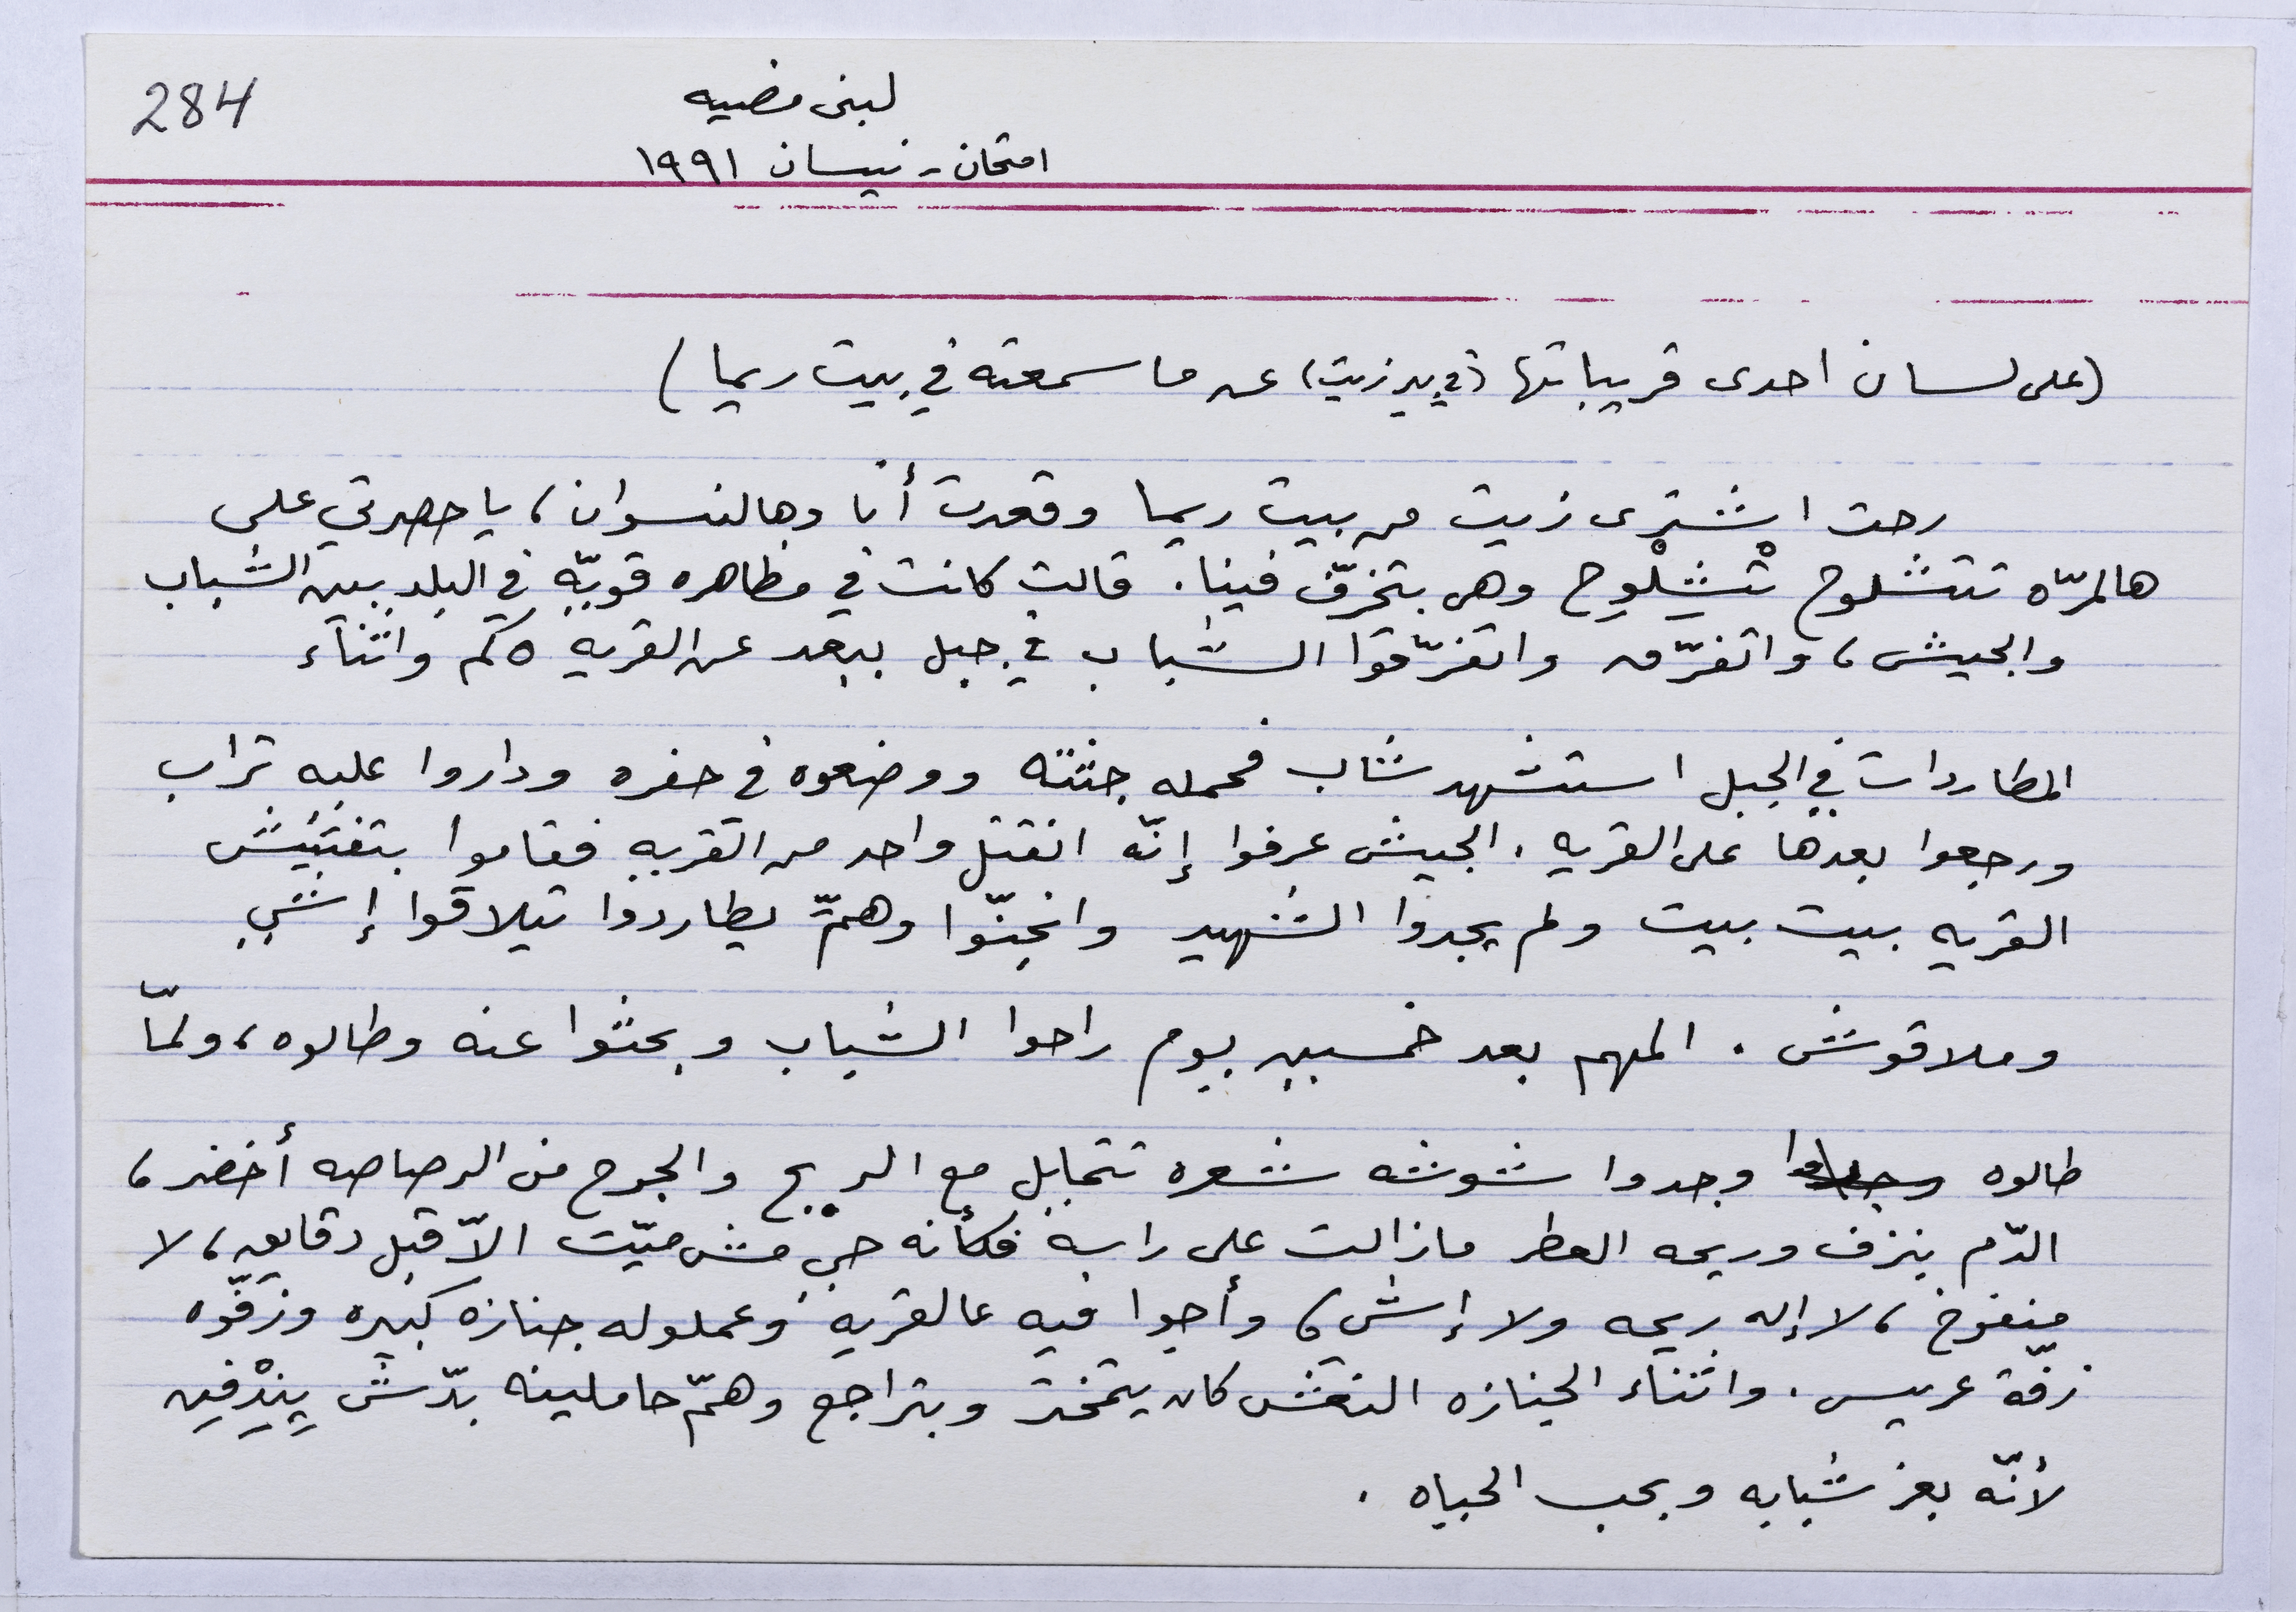 284
لبنى مضيه
امتحان - نيسان ١٩٩١
(على لسان احدى قريباتها (في بير زيت) عن ما سمعته في بيت ريما)
رحت اشترى زيت من بيت ريما وقعدت أنا وهالنسوان، يا حصرتي على
هالمرّه تتشلوح تْشِلْوِح وهي بتخرّف فينا. قالت كانت في مظاهره قويّه في البلد بين الشباب
والجيش، واتفرّق واتفرّقوا الشباب في جبل ببعد عن القريه ٥ كم واثناء
المطاردات في الجبل استشهد شاب فحمله جثته ووضعوه في حفره وداروا عليه تراب
ورجعوا بعدها على القريه. الجيش عرفوا إنّه انقتل واحد من القريه فقاموا بتفتيش
القريه بيت بيت ولم يجدوا الشهيد وانجنّوا وهمّ يطاردوا تيلاقوا إشي
وملاقوش. المهم بعد خمسين يوم راحوا الشباب وبحثوا عنه وطالوه، ولمّا
طالوه وجدوا شوشته شعره تتمايل مع الريح والجرح من الرصاصه أخضر،
الدّم ينزف وريحه العطر مازالت على راسه فكأنه حي مش ميّت الاّ قبل دقايق، لا
منفوخ، لا إله ريحه ولا إشي، وأجوا فيه عالقريه وعملوله جنازه كبيره وزفّوه
زفّة عريس. واثناء الجنازه النعش كان يتمختر وبتراجع وهمّ حاملينه بدّش يِنِدْفِن
لأنّه بعز شبابه وبحب الحياه.